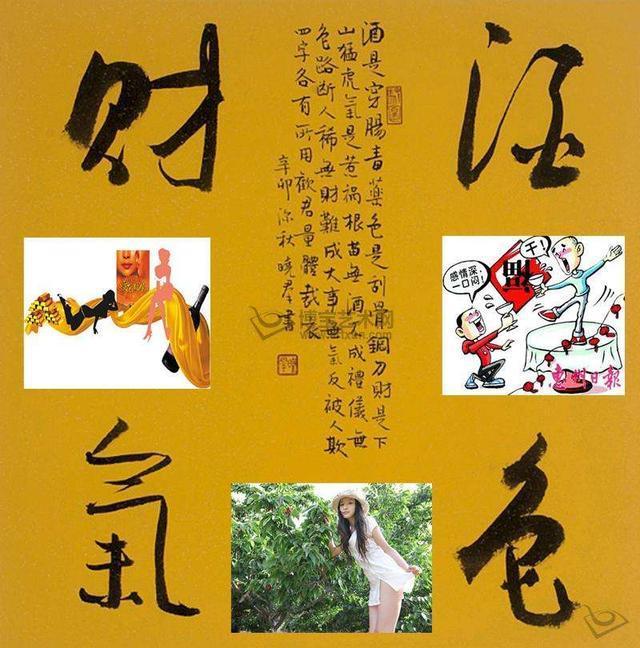 酒
色
财
氣
酒是穿腸毒藥色是刮骨鋼刀財是下
山猛虎氣是惹禍根苗無酒不成禮儀無
色路斷人稀無財難成大事無氣反被人欺
四字各有所用勸君量體裁衣
辛卯深秋曉君書
博宝艺术网
干!
感情深,
一口闷!
惠州日報